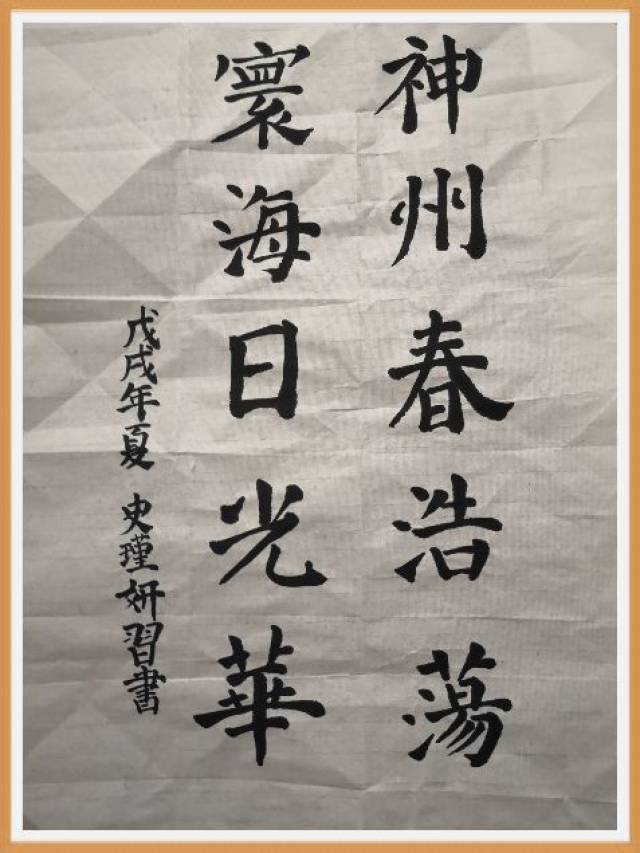 神州春浩蕩
寰海日光華
戊戌年夏 史瑾妍習書